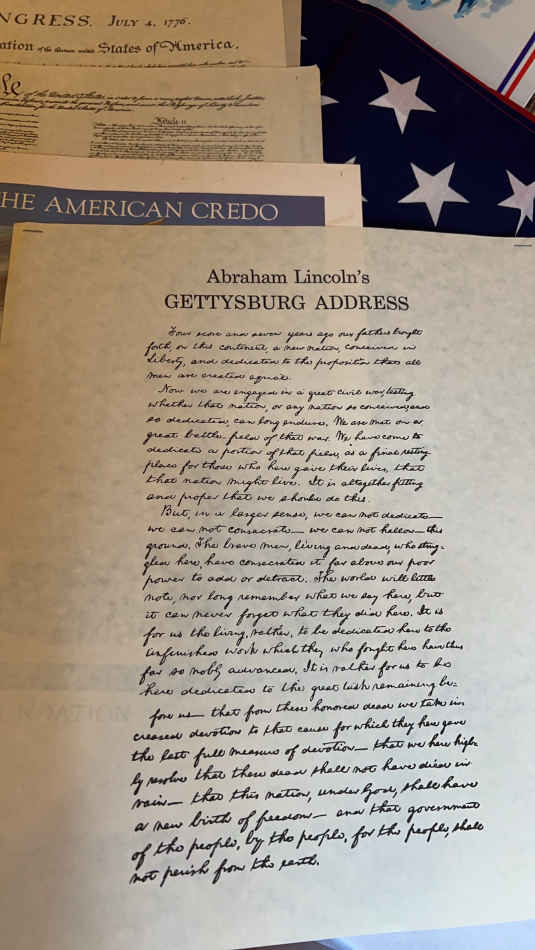 NGRESS. JULY 4, 1776.
ation of the thirteen united States of America.
Article II
HE AMERICAN CREDO
Abraham Lincoln's
GETTYSBURG ADDRESS
Four score and seven years ago our fathers brought
forth, on this continent, a new nation, conceived in
Liberty, and dedicated to the proposition that all
men are created equal.
Now we are engaged in a great civil war, testing
whether that nation, or any nation so conceived and
so dedicated, can long endure. We are met on a
great battle-field of that war. We have come to
dedicate a portion of that field, as a final resting
place for those who here gave their lives, that
that nation might live. It is altogether fitting
and proper that we should do this.
But, in a larger sense, we can not dedicate—
we can not consecrate— we can not hallow— this
ground. The brave men, living and dead, who strug-
gled here, have consecrated it, far above our poor
power to add or detract. The world will little
note, nor long remember what we say here, but
it can never forget what they did here. It is
for us the living, rather, to be dedicated here to the
unfinished work which they who fought here have thus
far so nobly advanced. It is rather for us to be
here dedicated to the great task remaining be-
fore us— that from these honored dead we take in-
creased devotion to that cause for which they here gave
the last full measure of devotion— that we here high-
ly resolve that these dead shall not have died in
vain— that this nation, under God, shall have
a new birth of freedom— and that government
of the people, by the people, for the people, shall
not perish from the earth.